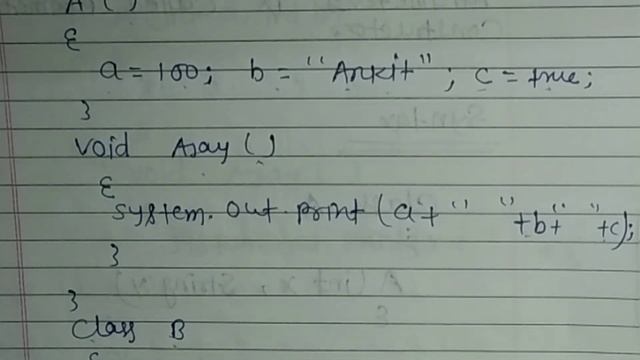 A ( )
{
a = 100; b = "Ankit"; c = true;
}
void Array ( )
{
system. out. print (a+ " " +b+ " " +c);
}
}
Class B
{